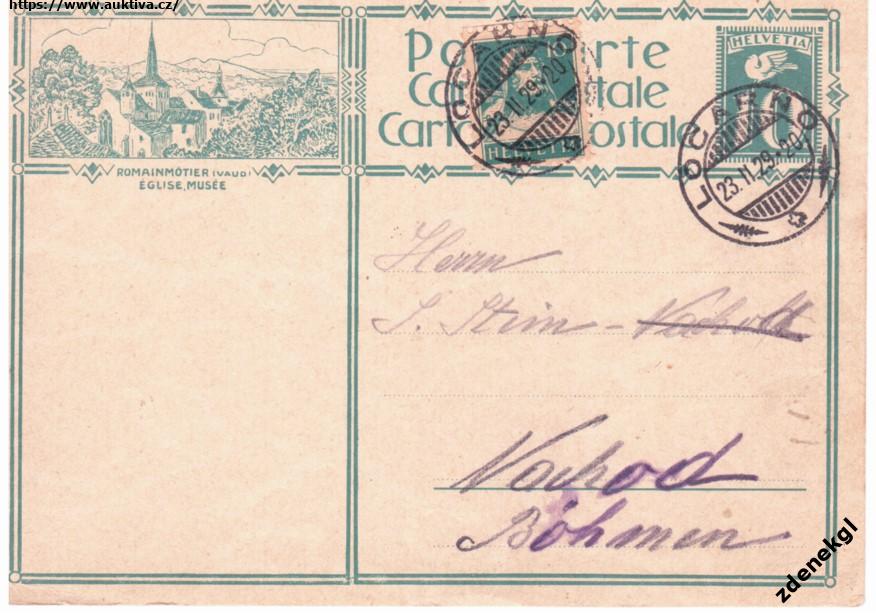 https://www.auktiva.cz/
ROMAINMÔTIER (VAUD)
ÉGLISE, MUSÉE
Po rte
Ca tale
Cart ostale
HELVETIA
LOCARNO
23.II.29.-20
HELVETIA
10
LOCARNO
23.II.29.-20
Herrn
S. Stein - 
Nachod
Böhmen
zdenekgl